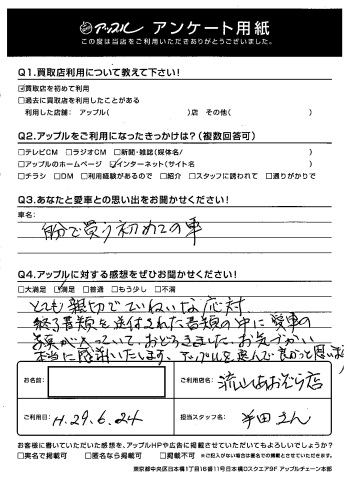 アップル アンケート用紙
この度は当店をご利用いただきありがとうございました。
Q1.買取店利用について教えて下さい!
☑買取店を初めて利用
□過去に買取店を利用したことがある
利用した店舗: アップル( )店 その他( )
Q2.アップルをご利用になったきっかけは?(複数回答可)
□テレビCM □ラジオCM □新聞・雑誌(媒体名/ )
□アップルのホームページ ☑インターネット(サイト名 )
□チラシ □DM □利用経験があるので □紹介 □スタッフに誘われて □通りがかりで
Q3.あなたと愛車との思い出をお聞かせください!
車名:
自分で買う初めての車
Q4.アップルに対する感想をぜひお聞かせください!
□大満足 ☑満足 □普通 □もう少し □不満
とても親切でていねいな応対
終了書類を送付された書類の中に愛車の
お写真が入っていて、おどろきました。お気づかい
本当に感謝いたします。アップルを選んで良かったと思います
お名前: ご利用店名: 流山おおぞら店
ご利用日: H.29.6.24 担当スタッフ名: 半田さん
お客様に書いていただいた感想を、アップルHPや広告に掲載させていただいてもよろしいでしょうか?
□実名で掲載可 □匿名なら掲載可 □掲載不可 ※ご記入がない場合は匿名での掲載とさせていただきます。
東京都中央区日本橋1丁目16番11号日本橋Dスクエア9F アップルチェーン本部